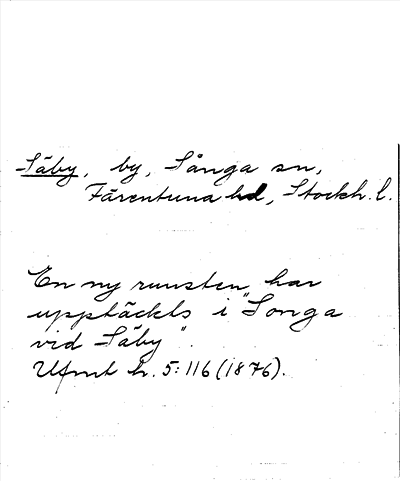 Säby, by, Sånga sn,
Färentuna hd, Stockh. l.
En ny runsten har
upptäckts i "Songa
vid Säby".
Ufmt h. 5:116 (1876).